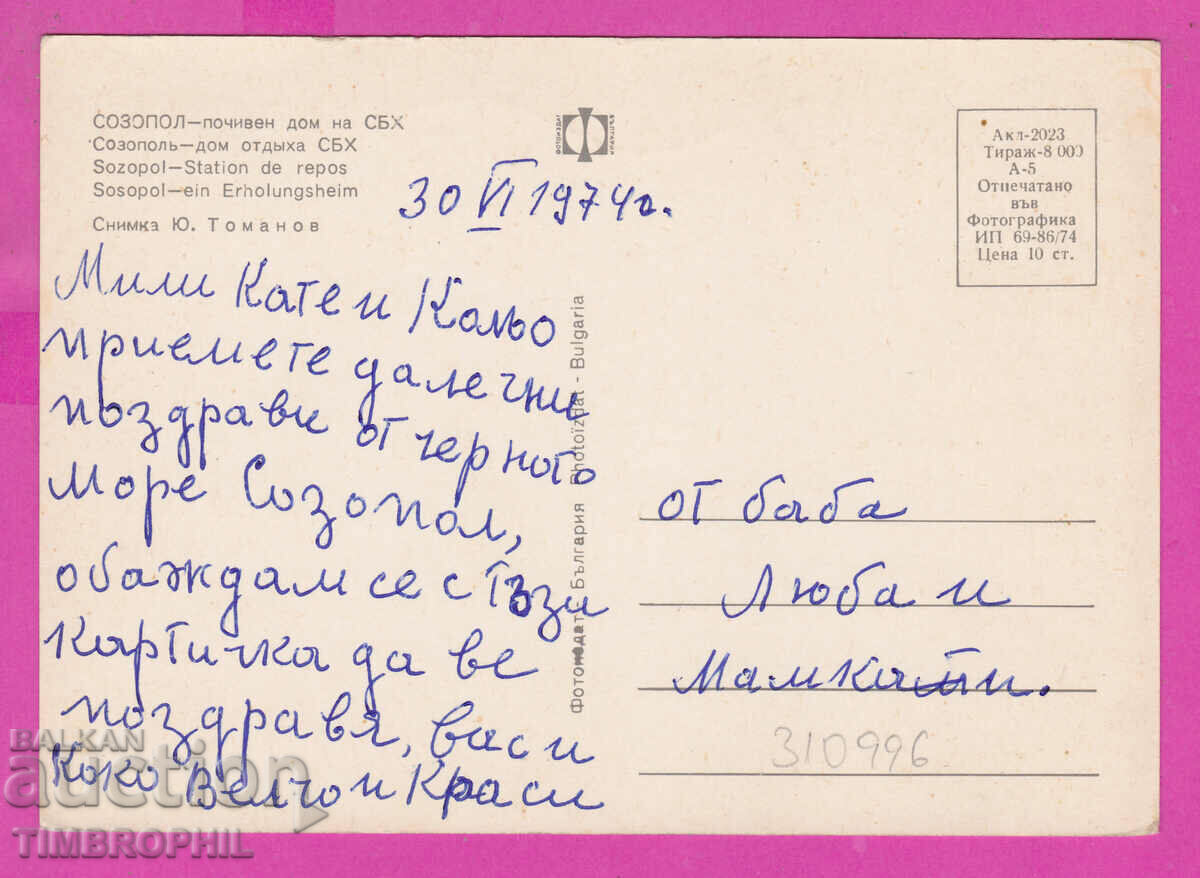 СОЗОПОЛ—почивен дом на СБХ
Созополь—дом отдыха СБХ
Sozopol—Station de repos
Sosopol—ein Erholungsheim
Снимка Ю. Томанов
ФОТОИЗДАТ
БЪЛГАРИЯ
Акл-2023
Тираж-8 000
А-5
Отпечатано
във
Фотографика
ИП 69-86/74
Цена 10 ст.
30 VI 1974 г.
Мили Кате и Кольо
приемете далечни
поздрави от черното
море Созопол,
обаждам се с тъзи
картичка да ве
поздравя, вас и
Коко Велчо и Краси
Фотоиздат България Photoizdat - Bulgaria
от баба
Люба и
310996
BALKAN
auction
TIMBROPHIL